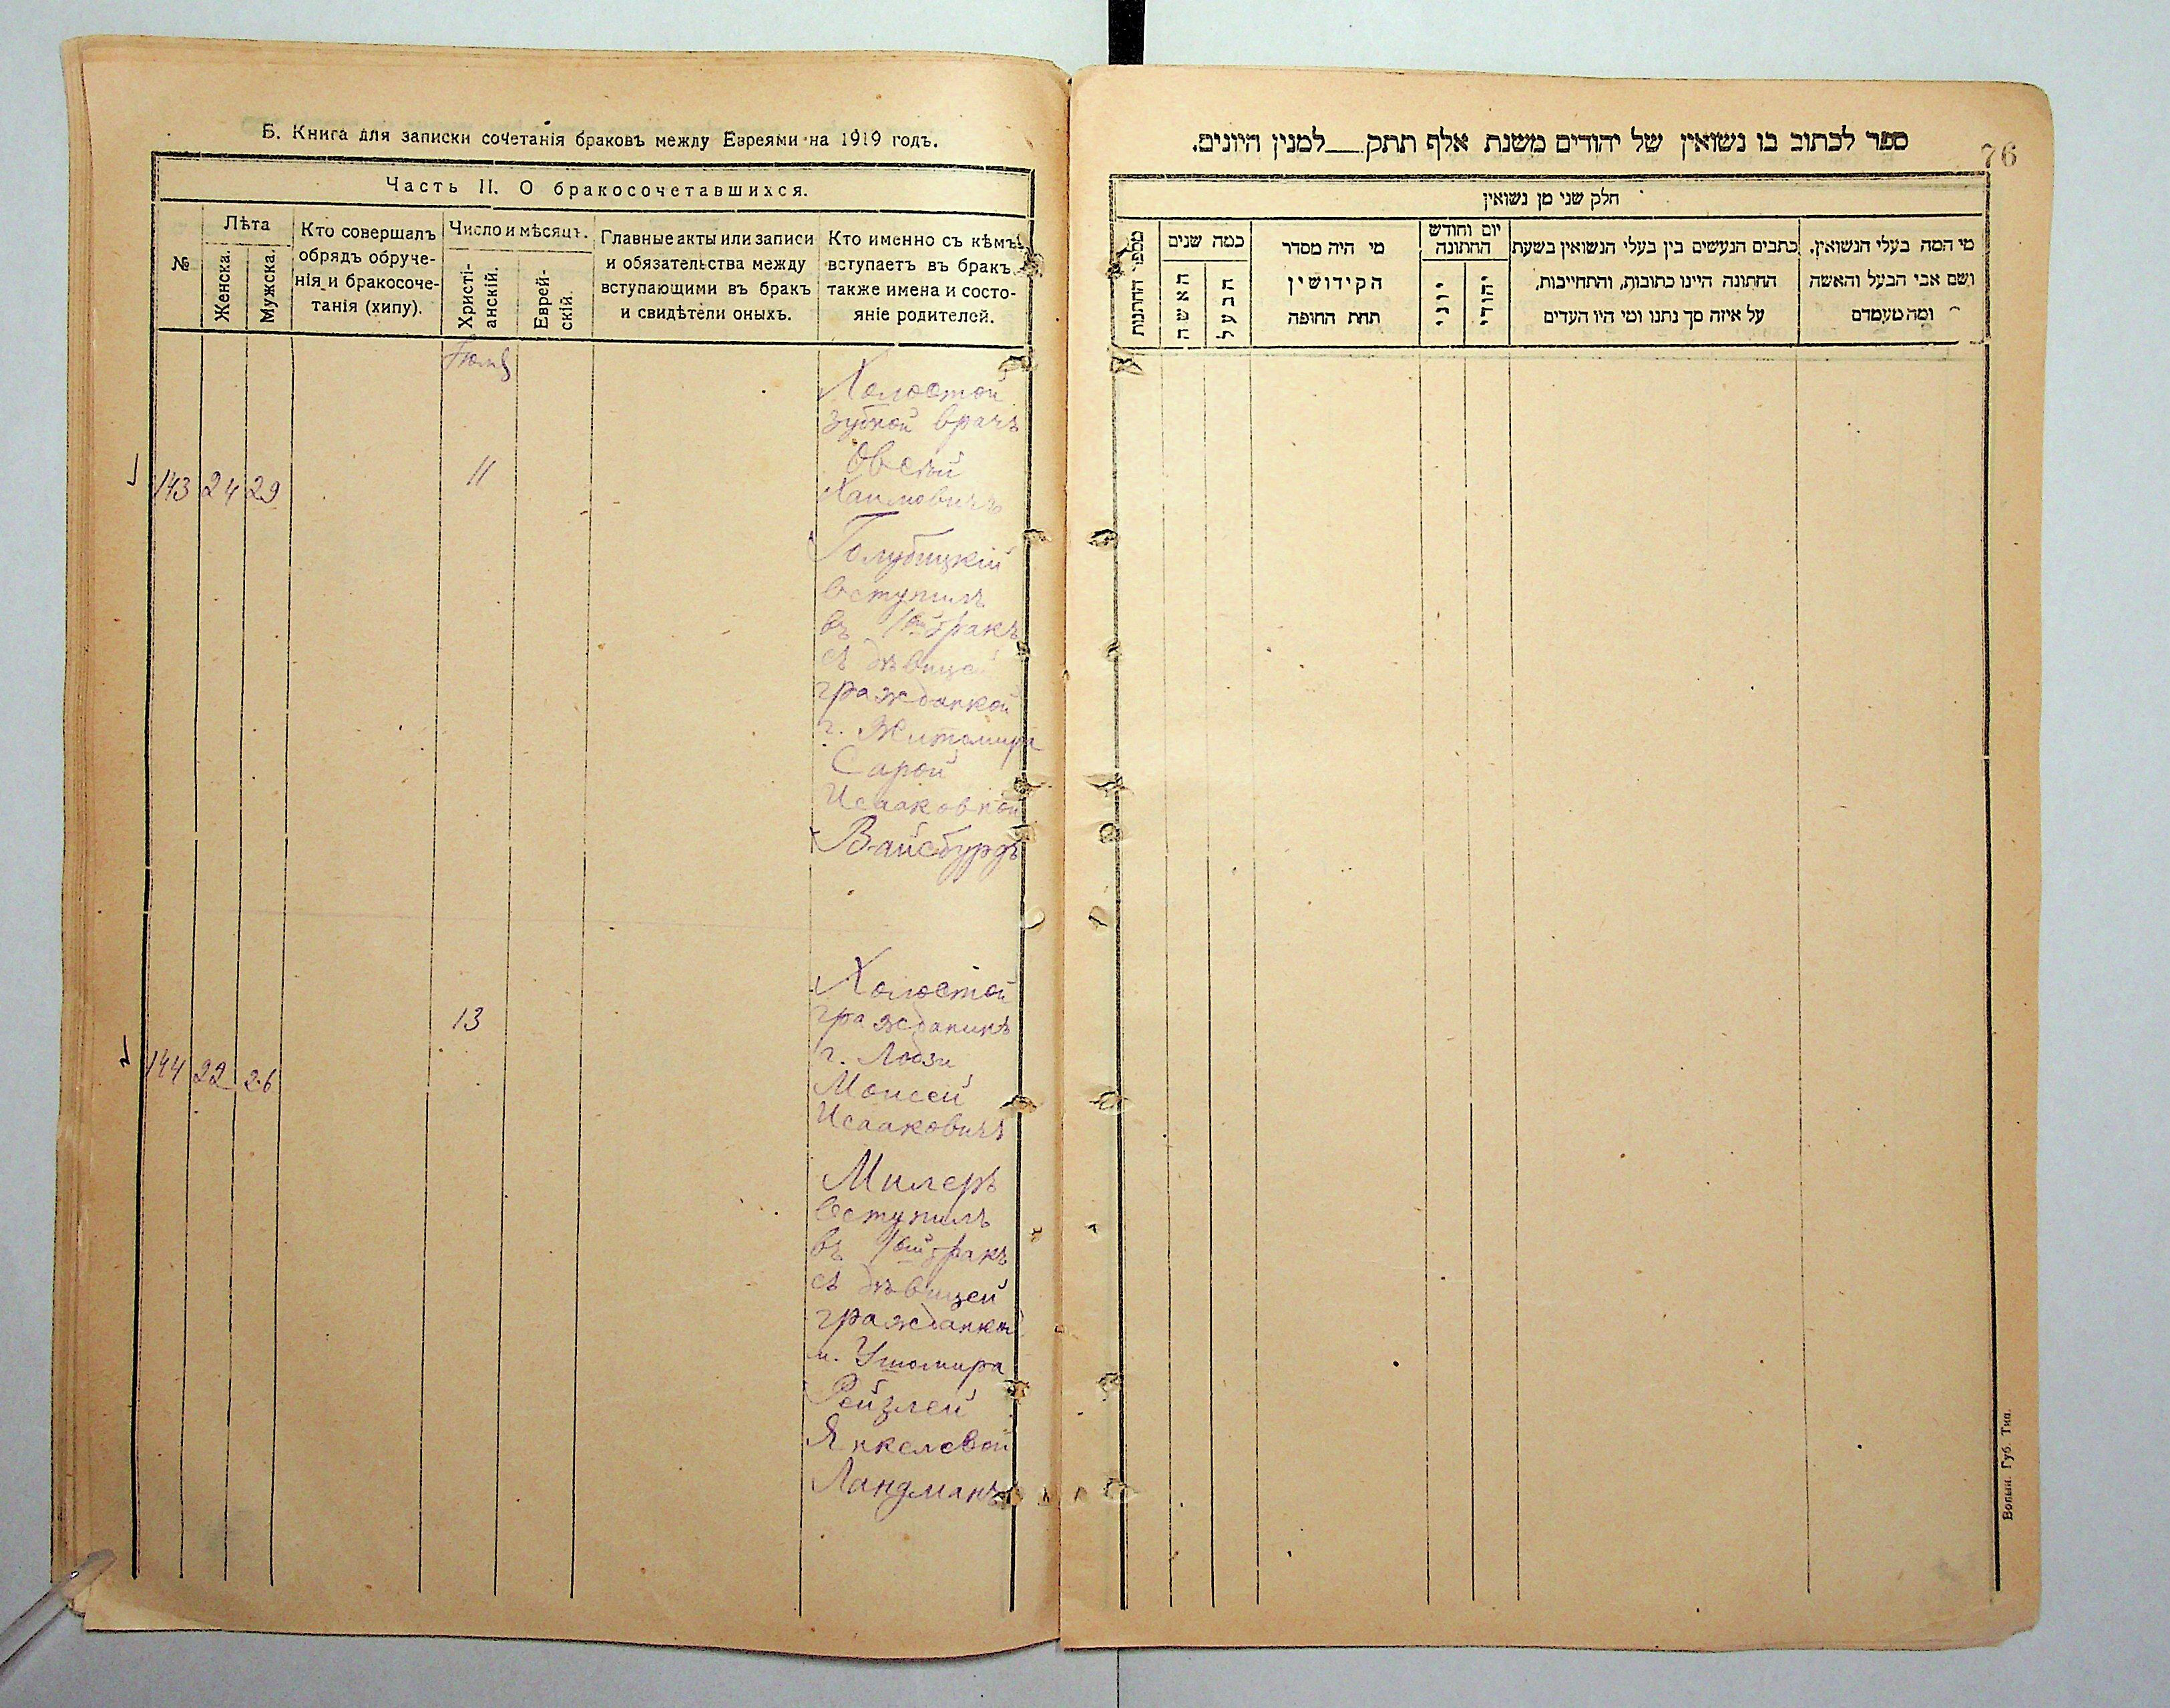 Б. Книга для записки сочетанія браковъ между Евреями на 1919 годъ.
Часть II. О бракосочетавшихся.
№
Лѣта
Женска.
Мужска.
Кто совершалъ
обрядъ обруче-
нія и бракосоче-
танія (хипу).
Число и мѣсяцъ.
Христі-
анскій.
Еврей-
скій.
Главные акты или записи
и обязательства между
вступающими въ бракъ
и свидѣтели оныхъ.
Кто именно съ кѣмъ
вступаетъ въ бракъ
также имена и состо-
яніе родителей.
143 24 29
11
Холостой
зубной врачъ
Овсей
Хаимовичъ
Голубицкій
вступилъ
въ 1ый бракъ
съ дѣвицей
гражданкой
г. Житомира
Сарой
Исааковной
Вайсбурдъ
144 22 26
13
Холостой
гражданинъ
г. Лодзи
Моисей
Исааковичъ
Милеръ
вступилъ
въ 1ый бракъ
съ дѣвицей
гражданкой
м. Ушомира
Рейзлей
Янкелевой
Ландманъ
ספר לכתוב בו נשואין של יהודים משנת אלף תתק___למנין היונים.
76
חלק שני מן נשואין
מספר החתנות
כמה שנים
האשה
הבעל
מי היה מסדר
הקידושין
תחת החופה
יום וחודש
החתונה
יוני
יהודי
כתבים הנעשים בין בעלי הנשואין בשעת
החתונה היינו כתובות, והתחייבות,
על איזה סך נתנו ומי היו העדים
מי המה בעלי הנשואין,
ושם אבי הבעל והאשה
ומה מעמדם
Волын. Губ. Тип.